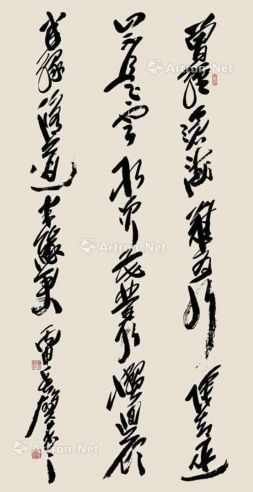 曾經滄海難為水除卻巫
山不是雲取次花叢懶迴顧
半緣修道半緣君
Artron.Net